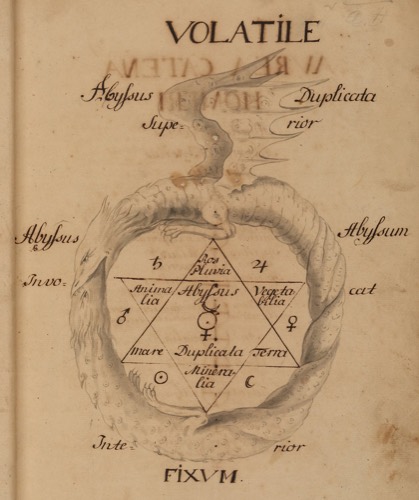 VOLATILE
Abyssus Duplicata
Supe- rior
Abyssus Abyssum
♄ Ros ♃
Pluvia
Invo- cat
Anima Abyssus Vegeta
lia bilia
♂ ☿ ♀
mare Duplicata Terra
☉ Minera- ☾
lia
Inte- rior
FIXUM.